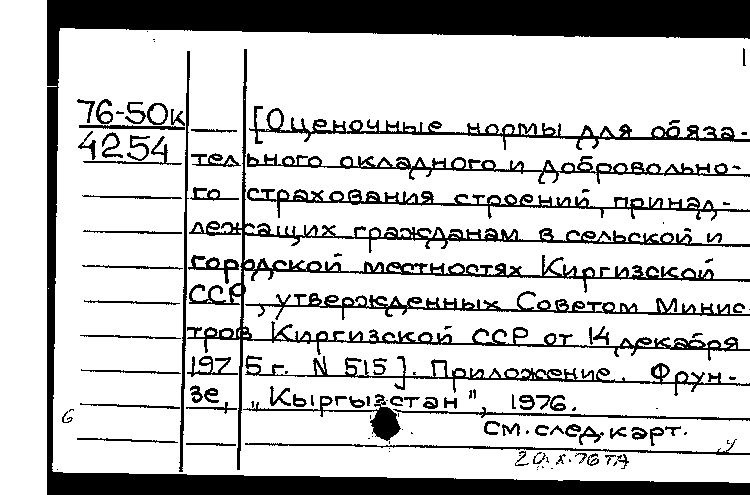 1
76-50к
4254
[Оценочные нормы для обяза-
тельного окладного и добровольно-
го страхования строений, принад-
лежащих гражданам в сельской и
городской местностях Киргизской
ССР, утвержденных Советом Минис
тров Киргизской ССР от 14 декабря
1975 г. N 515]. Приложение. Фрун-
зе, „Кыргызстан", 1976.
см. след. карт.
6
у
20.X.76 ТА